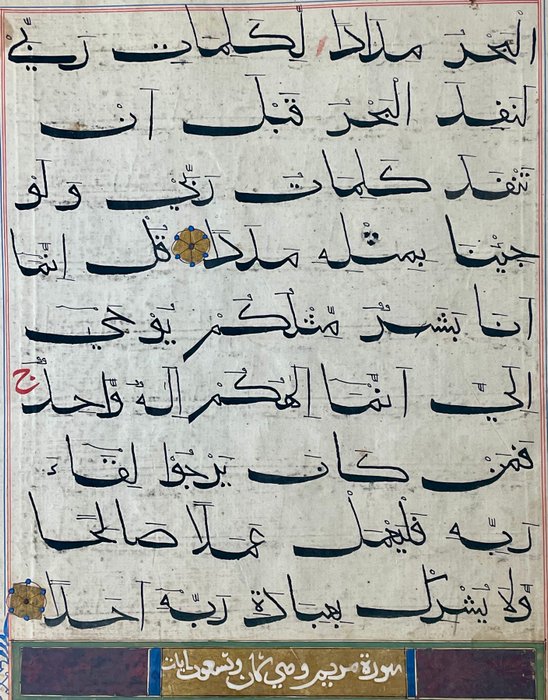 الْبَحْرُ مِدَادًا لِّكَلِمَاتِ رَبِّيْ
لَنَفِدَ الْبَحْرُ قَبْلَ اَنْ
تَنْفَدَ كَلِمَاتُ رَبِّيْ وَلَوْ
جِئْنَا بِمِثْلِهٖ مَدَدًا قُلْ اِنَّمَا
اَنَا بَشَرٌ مِّثْلُكُمْ يُوْحٰيْ
اِلَيَّ اَنَّمَا اِلٰهُكُمْ اِلٰهٌ وَّاحِدٌ ج
فَمَنْ كَانَ يَرْجُوْا لِقَاءَ
رَبِّهٖ فَلْيَعْمَلْ عَمَلًا صَالِحًا
وَّلَا يُشْرِكْ بِعِبَادَةِ رَبِّهٖ اَحَدًا
سورة مريم وهي ثمان وتسعون ايات